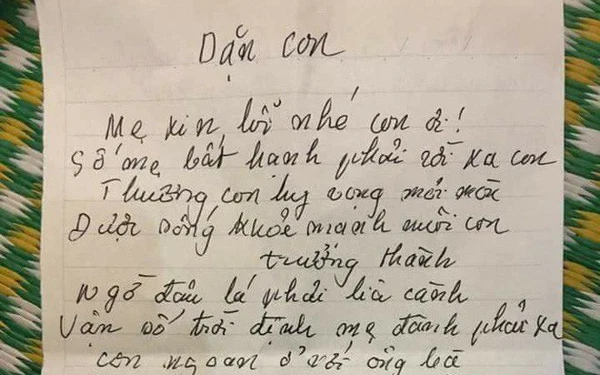 Dặn con
Mẹ xin lỗi nhé con ơi!
Số mẹ bất hạnh phải rời xa con
Thương con hy vọng mỏi mòn
Được sống khỏe mạnh nuôi con
trưởng thành
Ngờ đâu lá phải lìa cành
Vận số trời định mẹ đành phải xa
con ngoan ở với ông bà